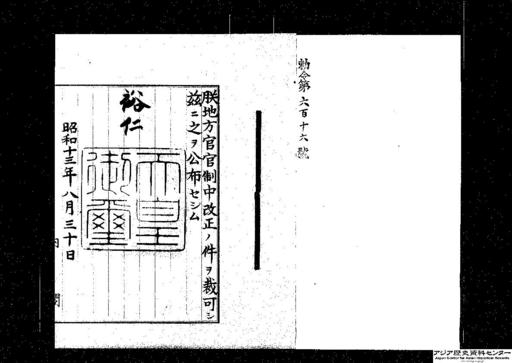 勅令第六百十六號
朕地方官官制中改正ノ件ヲ裁可シ
茲ニ之ヲ公布セシム
裕仁
天皇御璽
昭和十三年八月三十日
アジア歴史資料センター
Japan Center for Asian Historical Records